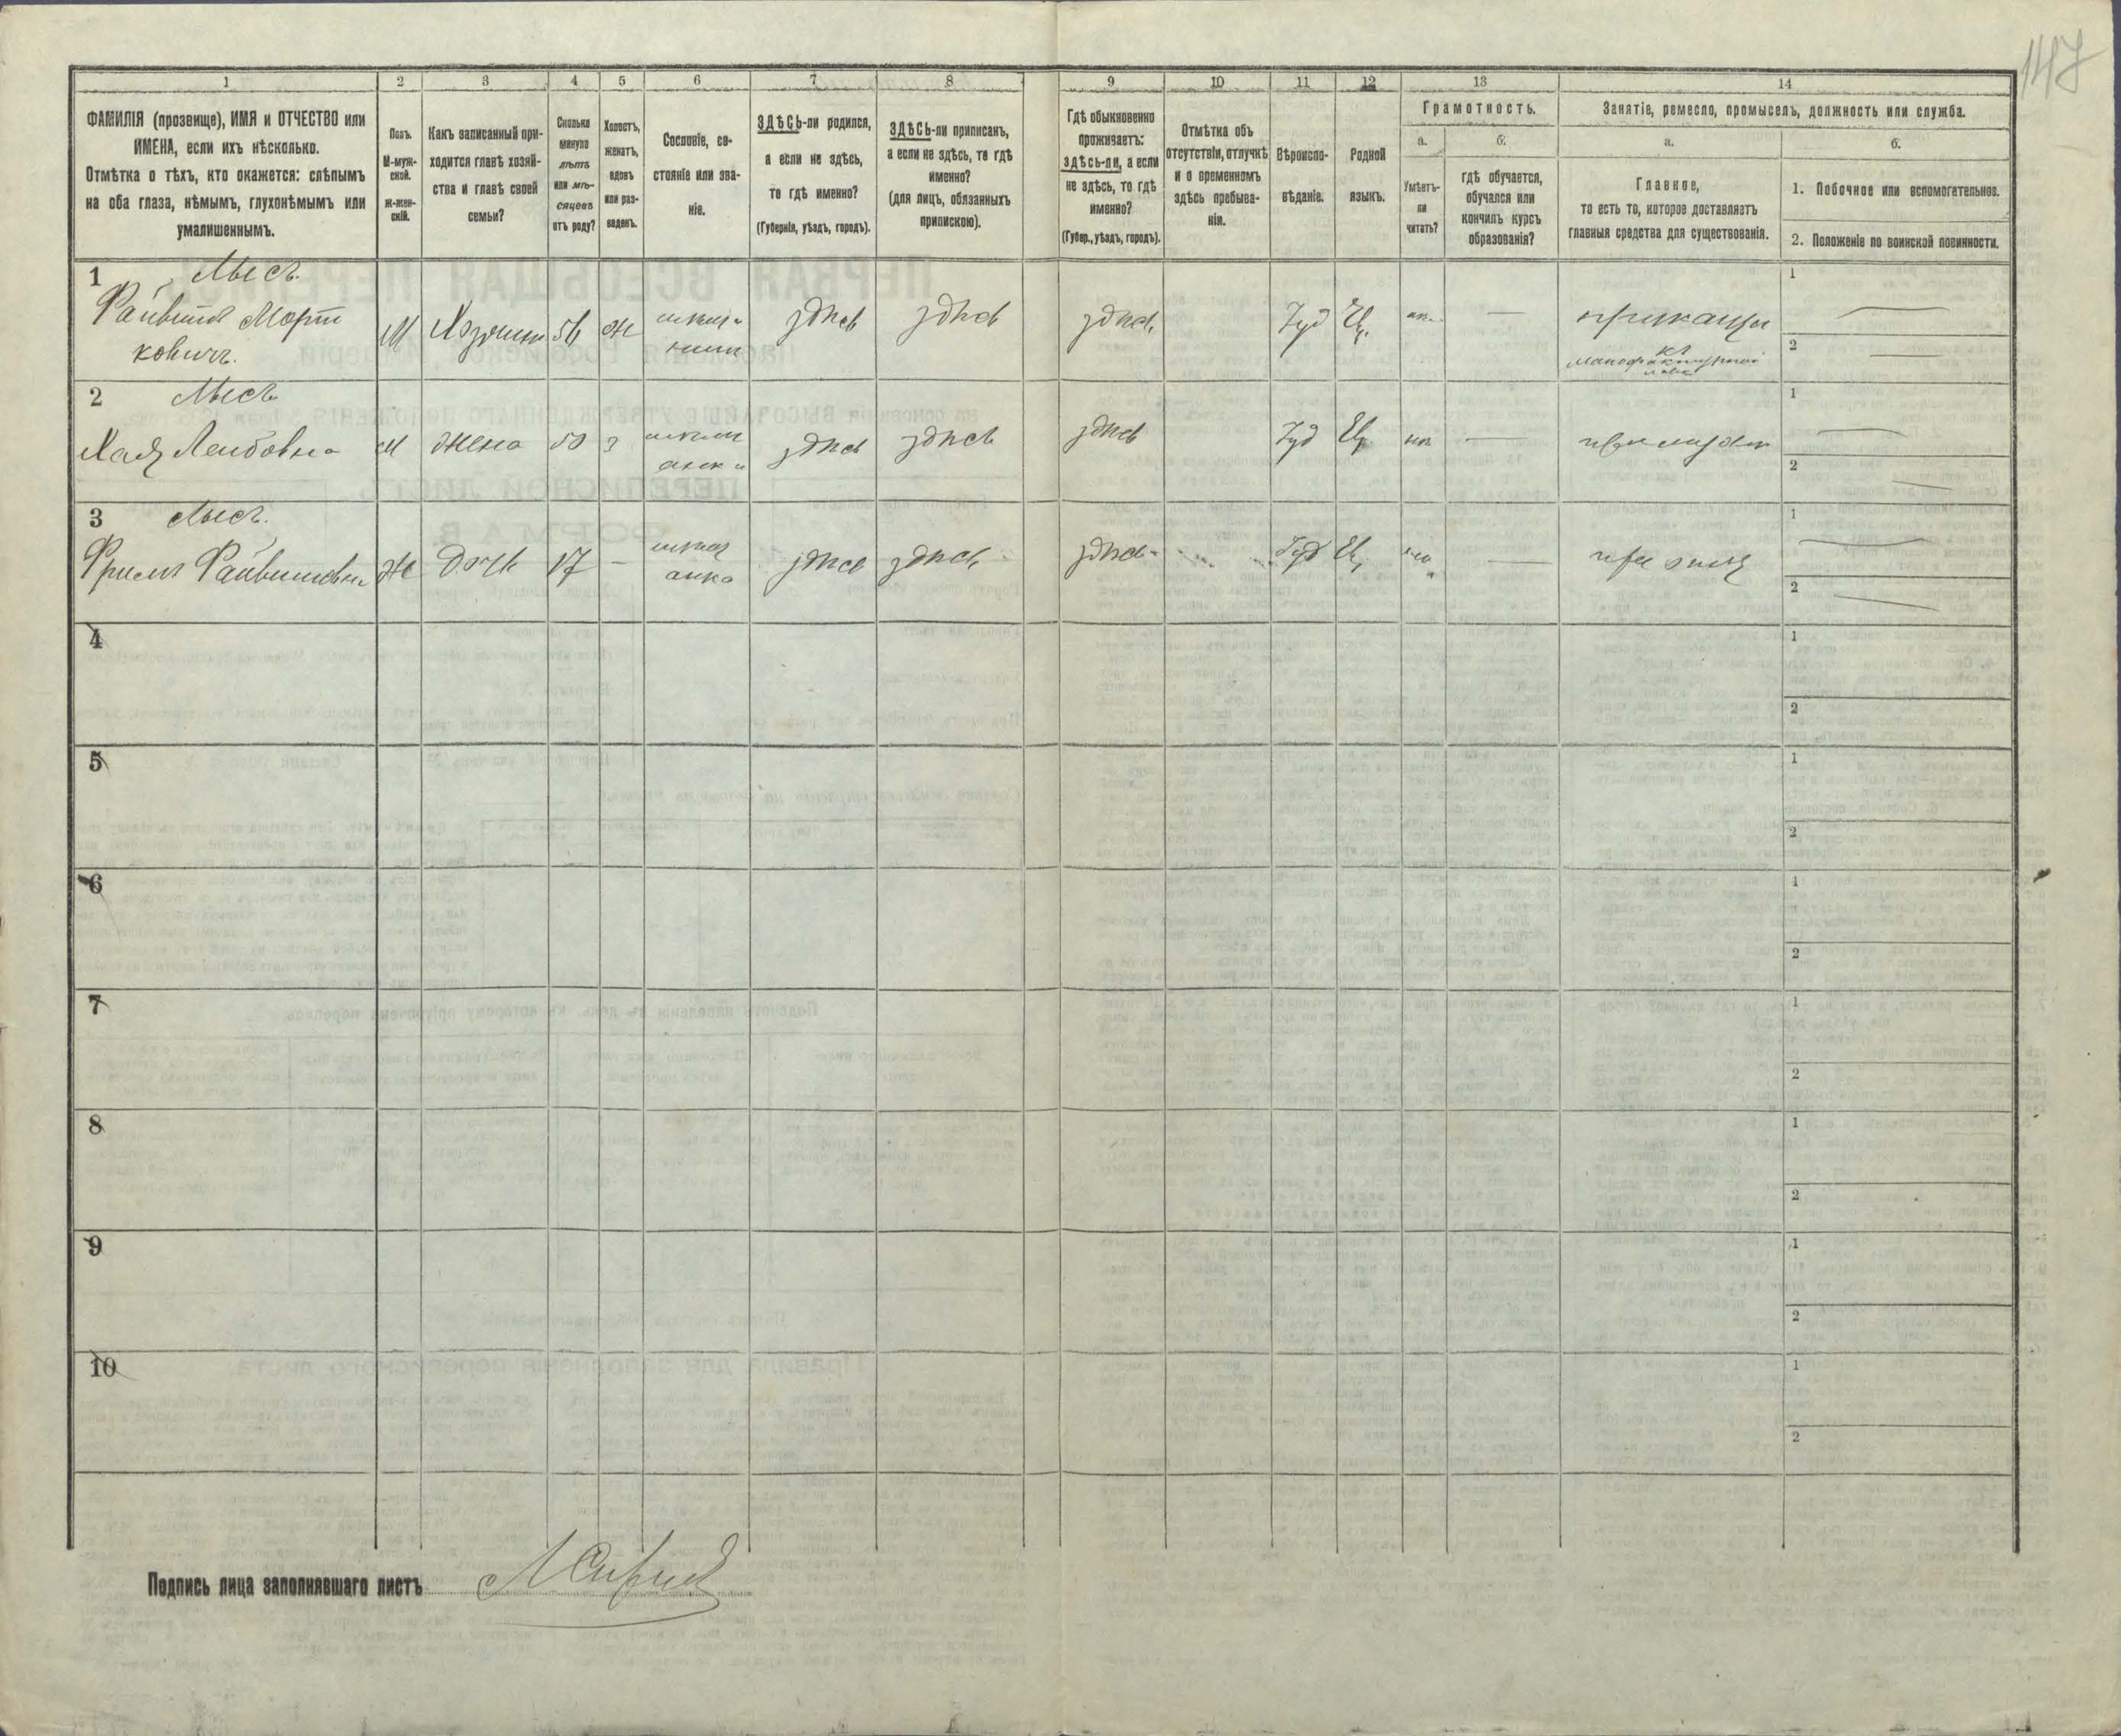 147
1
2
3
4
5
6
7
8
9
10
11
12
13
14
ФАМИЛІЯ (прозвище), ИМЯ и ОТЧЕСТВО или
ИМЕНА, если ихъ нѣсколько.
Отмѣтка о тѣхъ, кто окажется: слѣпымъ
на оба глаза, нѣмымъ, глухонѣмымъ или
умалишеннымъ.
Полъ.
М-муж-
ской.
ж-жен-
скій.
Какъ записанный при-
ходится главѣ хозяй-
ства и главѣ своей
семьи?
Сколько
минуло
лѣтъ
или мѣ-
сяцевъ
отъ роду?
Холостъ,
женатъ,
вдовъ
или раз-
веденъ.
Сословіе, со-
стояніе или зва-
ніе.
ЗДѢСЬ-ли родился,
а если не здѣсь,
то гдѣ именно?
(Губернія, уѣздъ, городъ).
ЗДѢСЬ-ли приписанъ,
а если не здѣсь, то гдѣ
именно?
(для лицъ, обязанныхъ
припискою).
Гдѣ обыкновенно
проживаетъ:
здѣсь-ли, а если
не здѣсь, то гдѣ
именно?
(Губер., уѣздъ, городъ).
Отмѣтка объ
отсутствіи, отлучкѣ
и о временномъ
здѣсь пребыва-
ніи.
Вѣроиспо-
вѣданіе.
Родной
языкъ.
Грамотность.
а.
Умѣетъ-
ли
читать?
б.
гдѣ обучается,
обучался или
кончилъ курсъ
образованія?
Занятіе, ремесло, промыселъ, должность или служба.
а.
Главное,
то есть то, которое доставляетъ
главныя средства для существованія.
б.
1. Побочное или вспомогательное.
2. Положеніе по воинской повинности.
1
Лысъ
Файвишъ Морт
ковичъ.
М
Хозяинъ
54
ж
здѣсь
здѣсь
здѣсь
Іуд
Ев.
приказчи
къ
1
2
2
Лысъ
Хая Лейбовна
М
жена
50
з
здѣсь
здѣсь
здѣсь
Іуд
Ев.
1
2
3
Лысъ.
Файвишовна
Ж
дочь
17
—
здѣсь
здѣсь
здѣсь
Іуд
Ев.
при отцѣ
1
2
4
1
2
5
1
2
6
1
2
7
1
2
8
1
2
9
1
2
10
1
2
Подпись лица заполнявшаго листъ